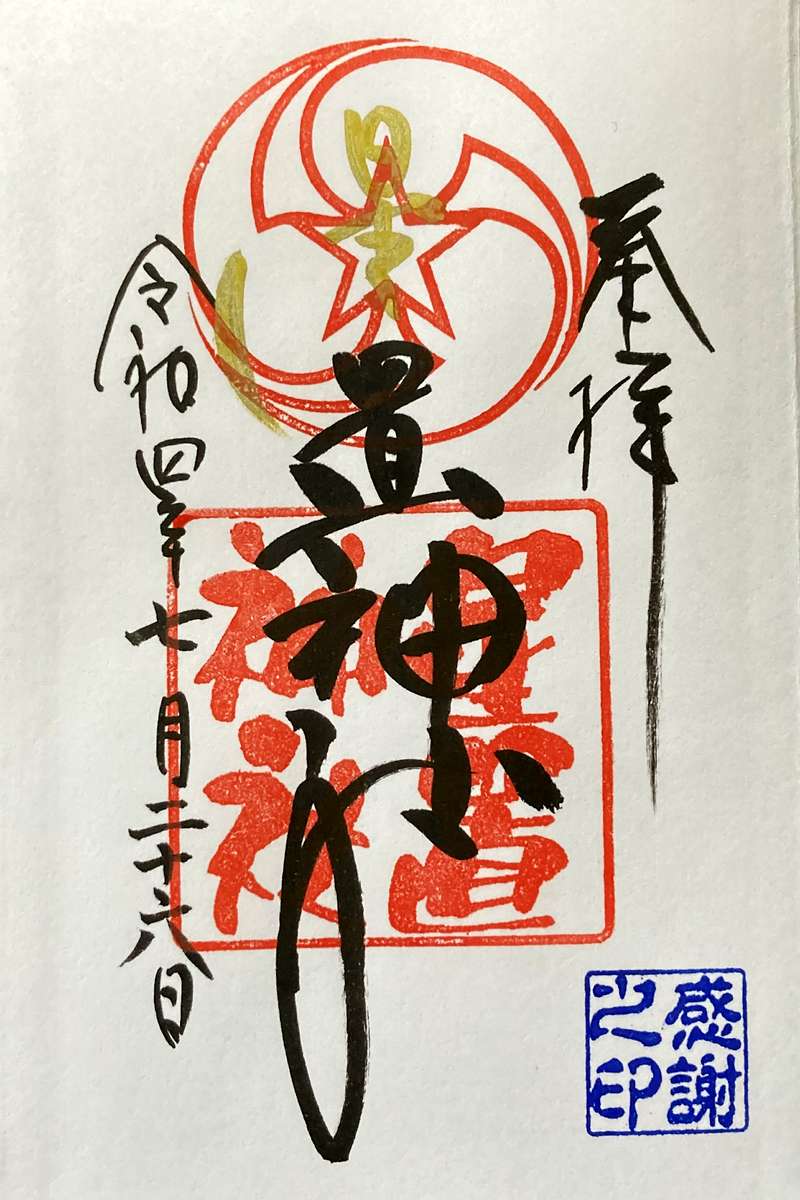 奉拝
星置神社
星置
神社
令和四年七月二十六日
感謝
之印